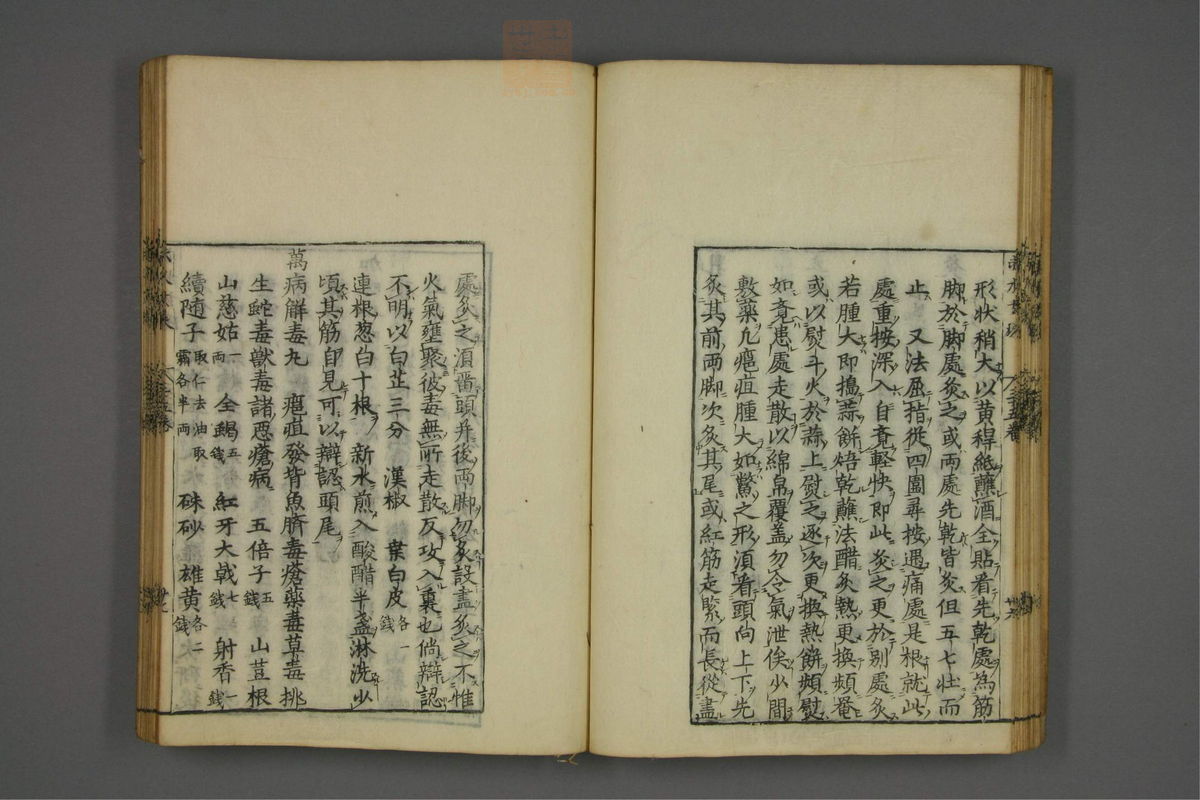 形狀稍大以黃稈紙蘸酒全貼看先乾處為筋
脚於脚處灸之或兩處先乾皆灸但五七壯而
止　又法屈指從四圍尋按遇痛處是根就此
處重按深入自覔輕快即此灸之更於別處灸
若腫大即搗蒜餅焙乾蘸法醋灸熱更換頻罨
或以熨斗火於蒜上熨之逐次更換熱餅頻熨
如覔患處走散以綿帛覆盖勿令氣泄俟少間
敷藥凢瘡疽腫大如鱉之形湏看頭向上下先
灸其前兩脚次灸其尾或紅筋走緊而長從盡
處灸之湏畱頭并後兩脚勿灸設盡灸之不惟
火氣壅聚彼毒無所走散反攻入裏也倘辯認
不明以白芷三分　漢椒　葉白皮各一錢
連根葱白十根　新水煎入酸醋半盞淋洗少
頃其筋自見可以辯認頭尾
萬病解毒丸　瘡疽發背魚臍毒瘡藥毒草毒挑
生蛇毒獸毒諸惡瘡病　五倍子五錢　山荳根
山慈姑一兩　全蝎五錢　紅牙大戟七錢　射香一錢
續随子取仁去油取霜各半兩　硃砂　雄黄各二錢